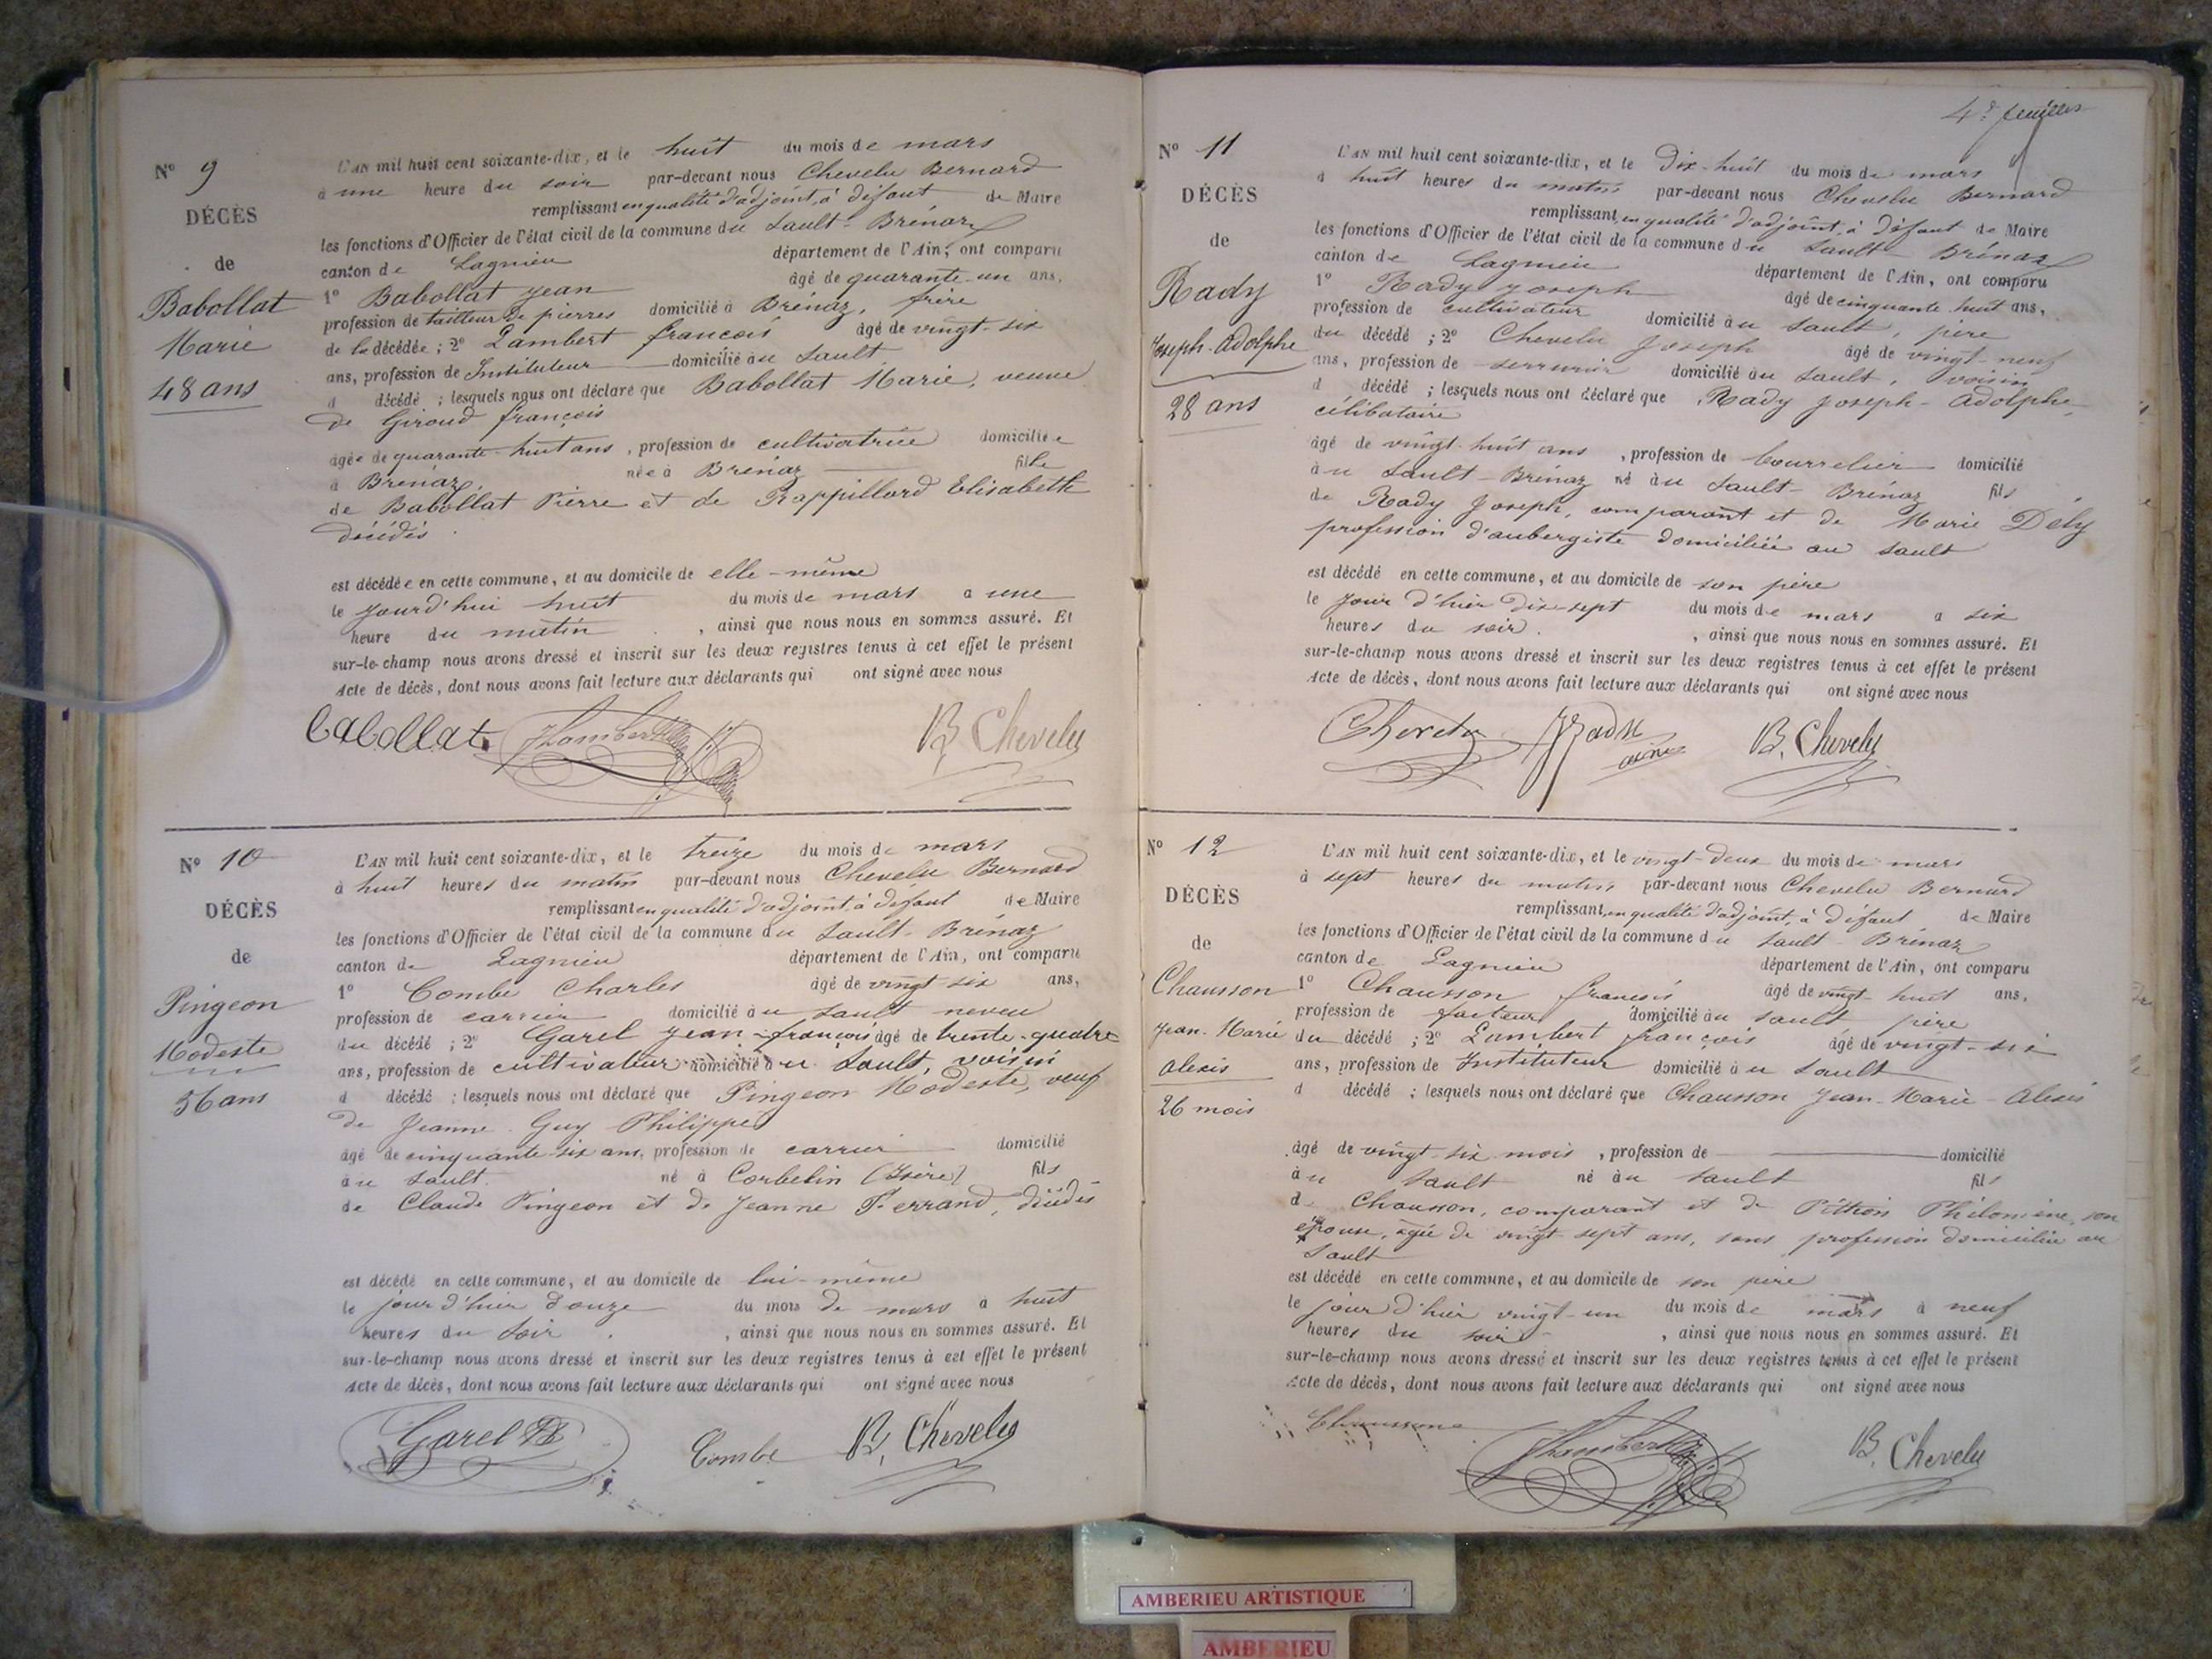 Nº 9
DÉCÈS
de
Babollat
Marie
48 ans
L'AN mil huit cent soixante-dix, et le huit du mois de mars
à une heure du soir par-devant nous Chevelu Bernard
remplissant en qualité d'adjoint, à défaut de Maire
les fonctions d'Officier de l'état civil de la commune du Sault-Brénaz
canton de Lagnieu département de l'Ain, ont comparu
1º Babollat Jean âgé de quarante-un ans,
profession de tailleur de pierres domicilié à Brénaz, frère
de la décédée ; 2º Lambert françois âgé de vingt-six
ans, profession de Instituteur domicilié au Sault
d décédé ; lesquels nous ont déclaré que Babollat Marie, veuve
de Giroud françois
âgée de quarante-huit ans, profession de cultivatrice domiciliée
à Brénaz, née à Brénaz fille
de Babollat Pierre et de Rappillard Elisabeth
décédés.
est décédée en cette commune, et au domicile de elle-même
le jourd'hui huit du mois de mars à une
heure du matin, ainsi que nous nous en sommes assuré. Et
sur-le-champ nous avons dressé et inscrit sur les deux registres tenus à cet effet le présent
acte de décès, dont nous avons fait lecture aux déclarants qui ont signé avec nous
babollat JLambert B. Chevelu
Nº 10
DÉCÈS
de
Pingeon
Modeste
56 ans
L'AN mil huit cent soixante-dix, et le treize du mois de mars
à huit heures du matin par-devant nous Chevelu Bernard
remplissant en qualité d'adjoint, à défaut de Maire
les fonctions d'Officier de l'état civil de la commune du Sault-Brénaz
canton de Lagnieu département de l'Ain, ont comparu
1º Combe Charles âgé de vingt-six ans,
profession de carrier domicilié au Sault neveu
du décédé ; 2º Garel Jean-françois âgé de trente-quatre
ans, profession de cultivateur domicilié au Sault, voisin
d décédé ; lesquels nous ont déclaré que Pingeon Modeste, veuf
de Jeanne Guy Philippe
âgé de cinquante-six ans, profession de carrier domicilié
au Sault. né à Corbelin (Isère) fils
de Claude Pingeon et de Jeanne Ferrand, décédés
est décédé en cette commune, et au domicile de lui-même
le jour d'hier douze du mois de mars à huit
heures du soir, ainsi que nous nous en sommes assuré. Et
sur-le-champ nous avons dressé et inscrit sur les deux registres tenus à cet effet le présent
acte de décès, dont nous avons fait lecture aux déclarants qui ont signé avec nous
Garel Combe B. Chevelu
4e feuillet
Nº 11
DÉCÈS
de
Rady
Joseph-Adolphe
28 ans
L'AN mil huit cent soixante-dix, et le dix-huit du mois de mars
à huit heures du matin par-devant nous Chevelu Bernard
remplissant en qualité d'adjoint, à défaut de Maire
les fonctions d'Officier de l'état civil de la commune du Sault-Brénaz
canton de Lagnieu département de l'Ain, ont comparu
1º Rady Joseph âgé de cinquante huit ans,
profession de cultivateur domicilié au Sault, père
du décédé ; 2º Chevelu Joseph âgé de vingt-neuf
ans, profession de serrurier domicilié au Sault, voisin
d décédé ; lesquels nous ont déclaré que Rady Joseph-Adolphe,
célibataire
âgé de vingt-huit ans, profession de bourrelier domicilié
au Sault-Brénaz né au Sault-Brénaz fils
de Rady Joseph, comparant et de Marie Dély
profession d'aubergiste domiciliée au Sault
est décédé en cette commune, et au domicile de son père
le jour d'hier dix-sept du mois de mars à six
heures du soir, ainsi que nous nous en sommes assuré. Et
sur-le-champ nous avons dressé et inscrit sur les deux registres tenus à cet effet le présent
acte de décès, dont nous avons fait lecture aux déclarants qui ont signé avec nous
Chevelu Rady aîné B. Chevelu
Nº 12
DÉCÈS
de
Chausson
Jean-Marie
Alexis
26 mois
L'AN mil huit cent soixante-dix, et le vingt-deux du mois de mars
à sept heures du matin par-devant nous Chevelu Bernard
remplissant en qualité d'adjoint, à défaut de Maire
les fonctions d'Officier de l'état civil de la commune du Sault-Brénaz
canton de Lagnieu département de l'Ain, ont comparu
1º Chausson françois âgé de vingt-huit ans,
profession de facteur domicilié au Sault père
du décédé ; 2º Lambert françois âgé de vingt-six
ans, profession de Instituteur domicilié au Sault
d décédé ; lesquels nous ont déclaré que Chausson Jean-Marie-Alexis
âgé de vingt-six mois, profession de domicilié
au Sault né au Sault fils
de Chausson, comparant et de Philomène, son
épouse, âgée de vingt-sept ans, sans profession domiciliée au
Sault
est décédé en cette commune, et au domicile de son père
le jour d'hier vingt-un du mois de mars à neuf
heures du soir, ainsi que nous nous en sommes assuré. Et
sur-le-champ nous avons dressé et inscrit sur les deux registres tenus à cet effet le présent
acte de décès, dont nous avons fait lecture aux déclarants qui ont signé avec nous
JLambert B. Chevelu
AMBERIEU ARTISTIQUE
AMBERIEU